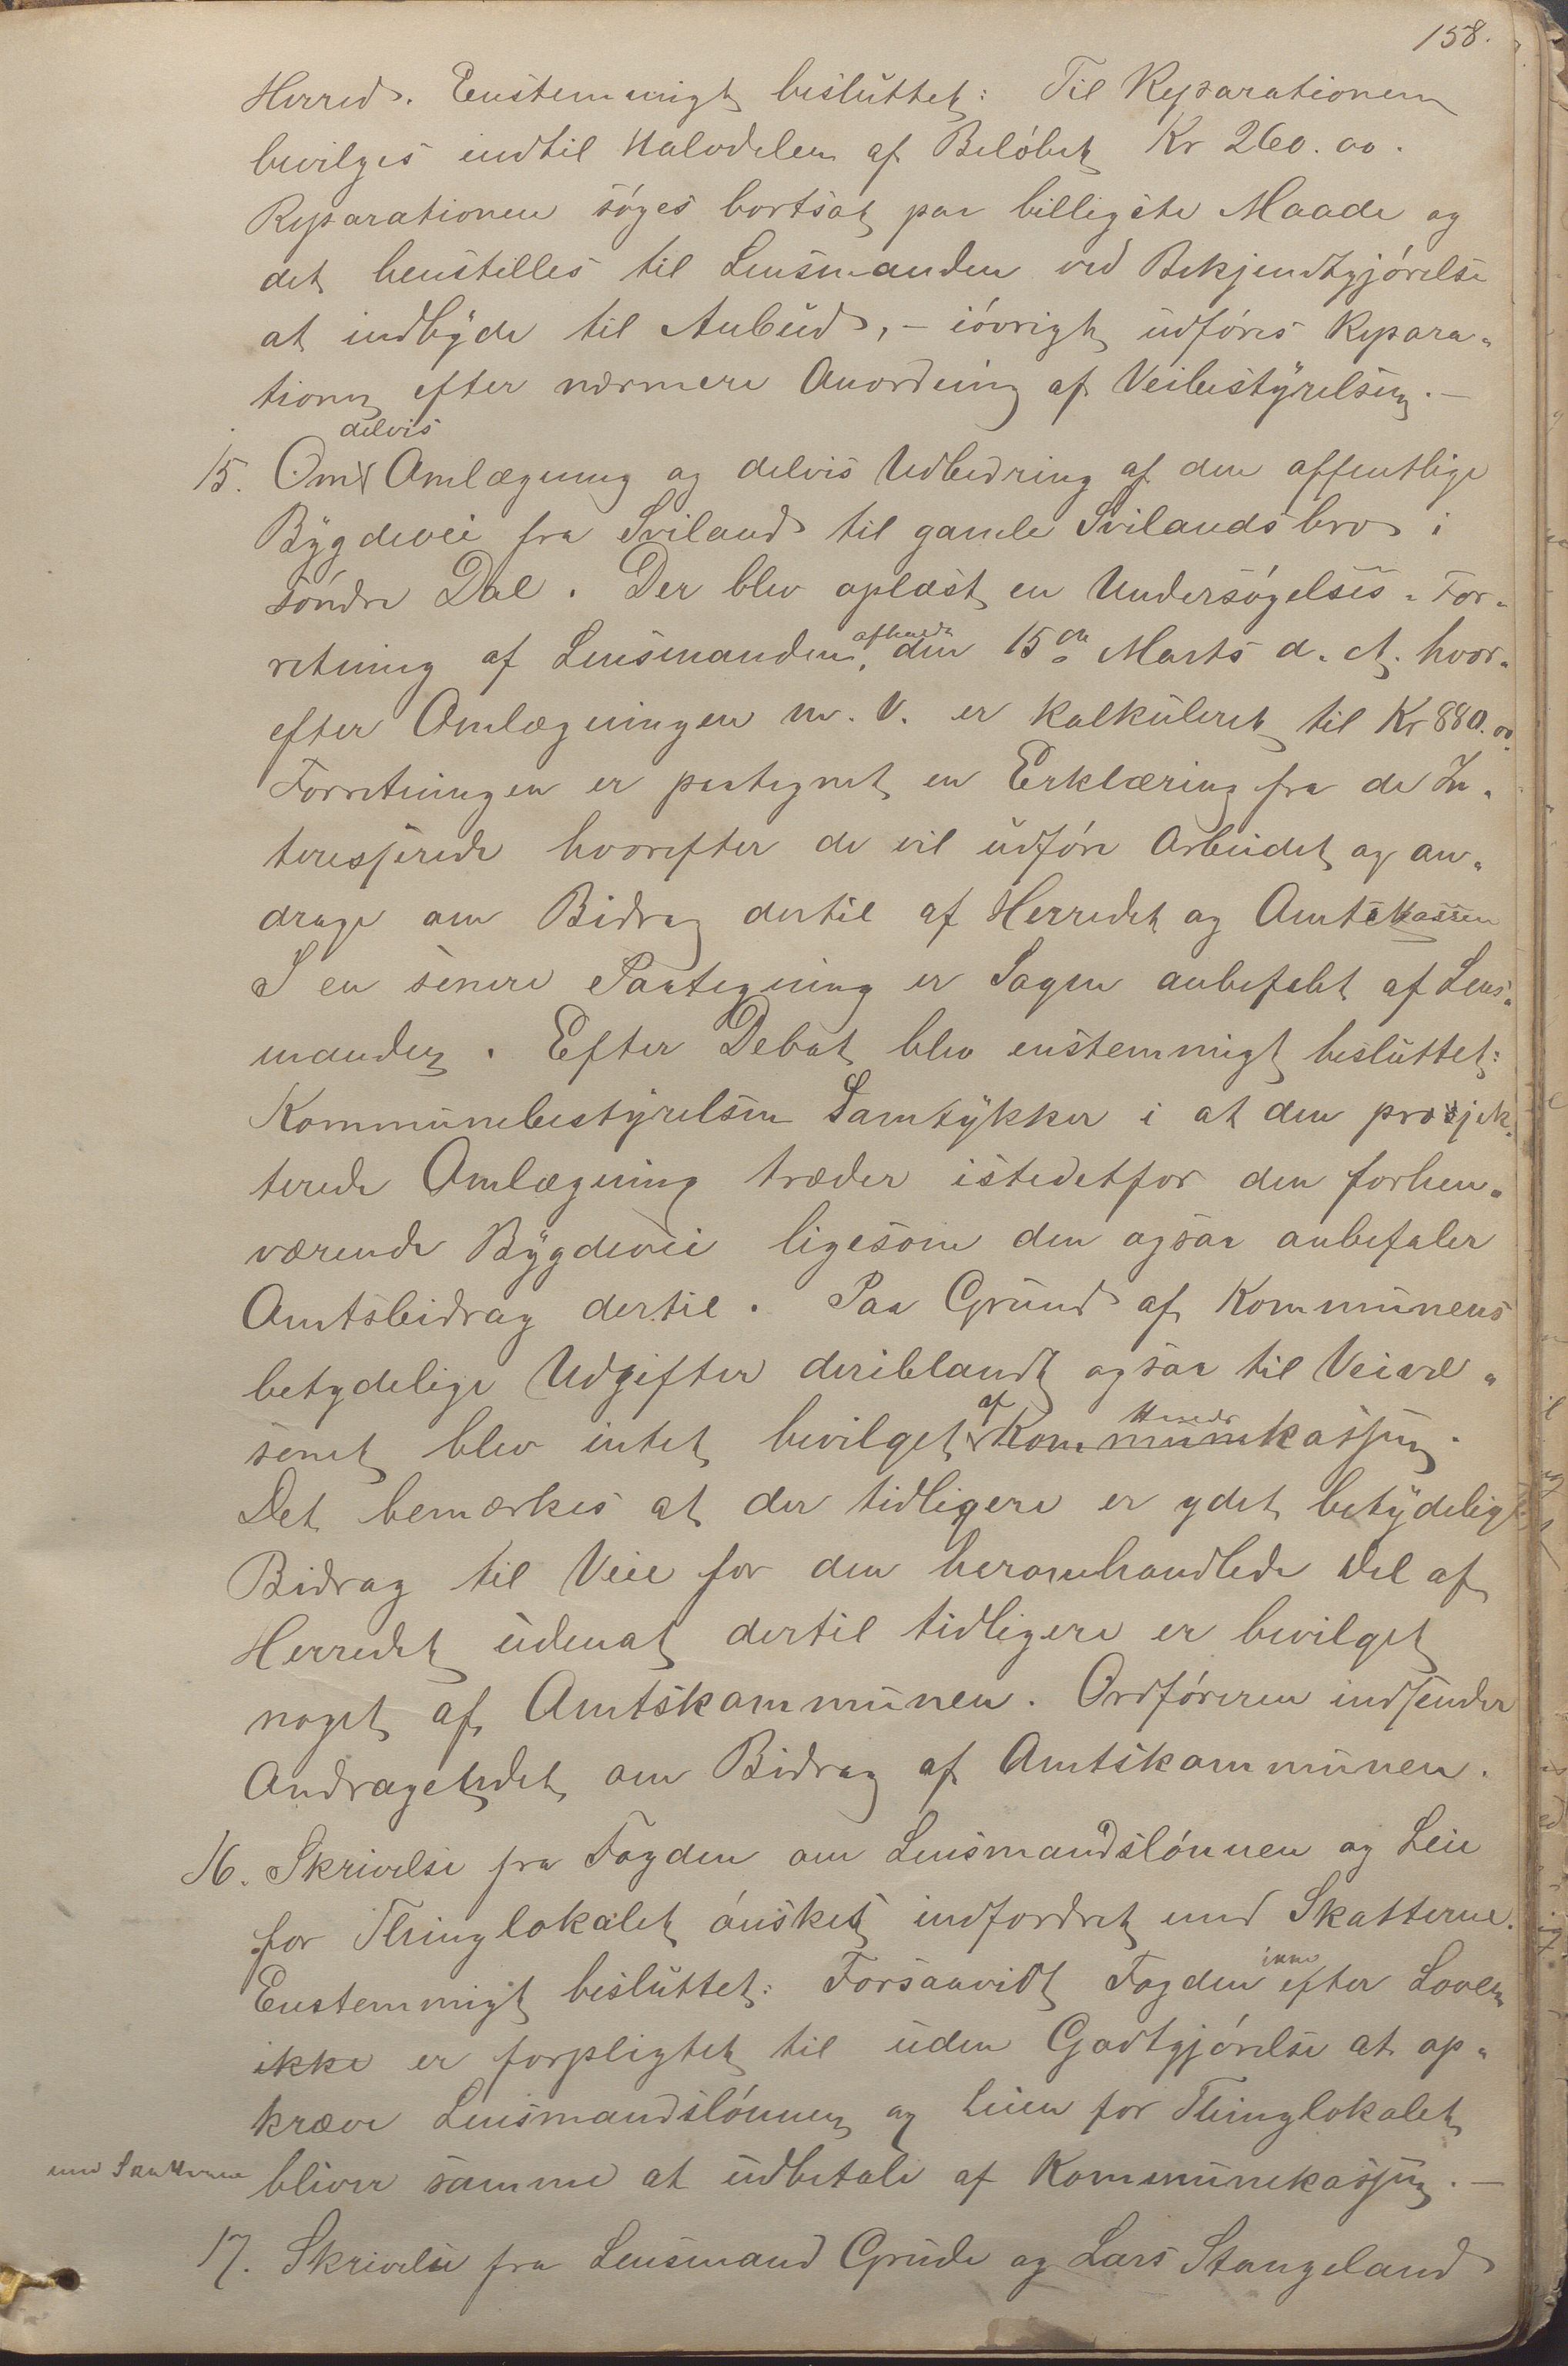 158.
Herred. Enstemmigt besluttet: Til Reparationen
bevilges indtil Halvdelen af Beløbet Kr 260.00.
Reparationen søges bortsat paa billigste Maade og
det henstilles til Lensmanden ved Bekjendtgjørelse
at indbyde til Anbud, – iøvrigt udføres Repara-
tionen efter nærmere Anordning af Veibestyrelsen. –
delvis
15. Om Omlægning og delvis Udbedring af den offentlige
Bygdevei fra Sviland til gamle Svilandsbro i
søndre Dal. Der blev oplæst en Undersøgelses-For-
afholdt
retning af Lensmanden, den 15de Marts d. A. hvor-
efter Omlægningen m. V. er kalkuleret til Kr 880.00.
Forretningen er paategnet en Erklæring fra de In-
teresserede hvorefter de vil udføre Arbeidet og an-
drage om Bidrag dertil af Herredet og Amtskassen
I en senere Paategning er Sagen anbefalet af Lens-
manden. Efter Debat blev enstemmigt besluttet:
Kommunebestyrelsen Samtykker i at den prosjek-
terede Omlægning træder istedetfor den forhen-
værende Bygdevei ligesom den ogsaa anbefaler
Amtsbidrag dertil. Paa Grund af Kommunens
betydelige Udgifter deriblandt ogsaa til Veivæ-
af Herreds
senet blev intet bevilget Kommunekassen.
Det bemærkes at der tidligere er ydet betydelige
Bidrag til Veie for den heromhandlede Del af
Herredet udenat dertil tidligere er bevilget
noget af Amtskommunen. Ordføreren indsender
Andragendet om Bidrag af Amtskommunen.
16. Skrivelse fra Fogden om Lensmandslønnen og Leie
for Thinglokalet ønsket indfordret med Skatterne.
ikke
Enstemmigt besluttet: Forsaavidt Fogden efter Loven
ikke er forpligtet til uden Godtgjørelse at op-
kræve Lensmandslønnen og Leien for Thinglokalet
med Skatterne
bliver samme at udbetale af Kommunekassen. –
17. Skrivelse fra Lensmand Grude og Lars Stangeland